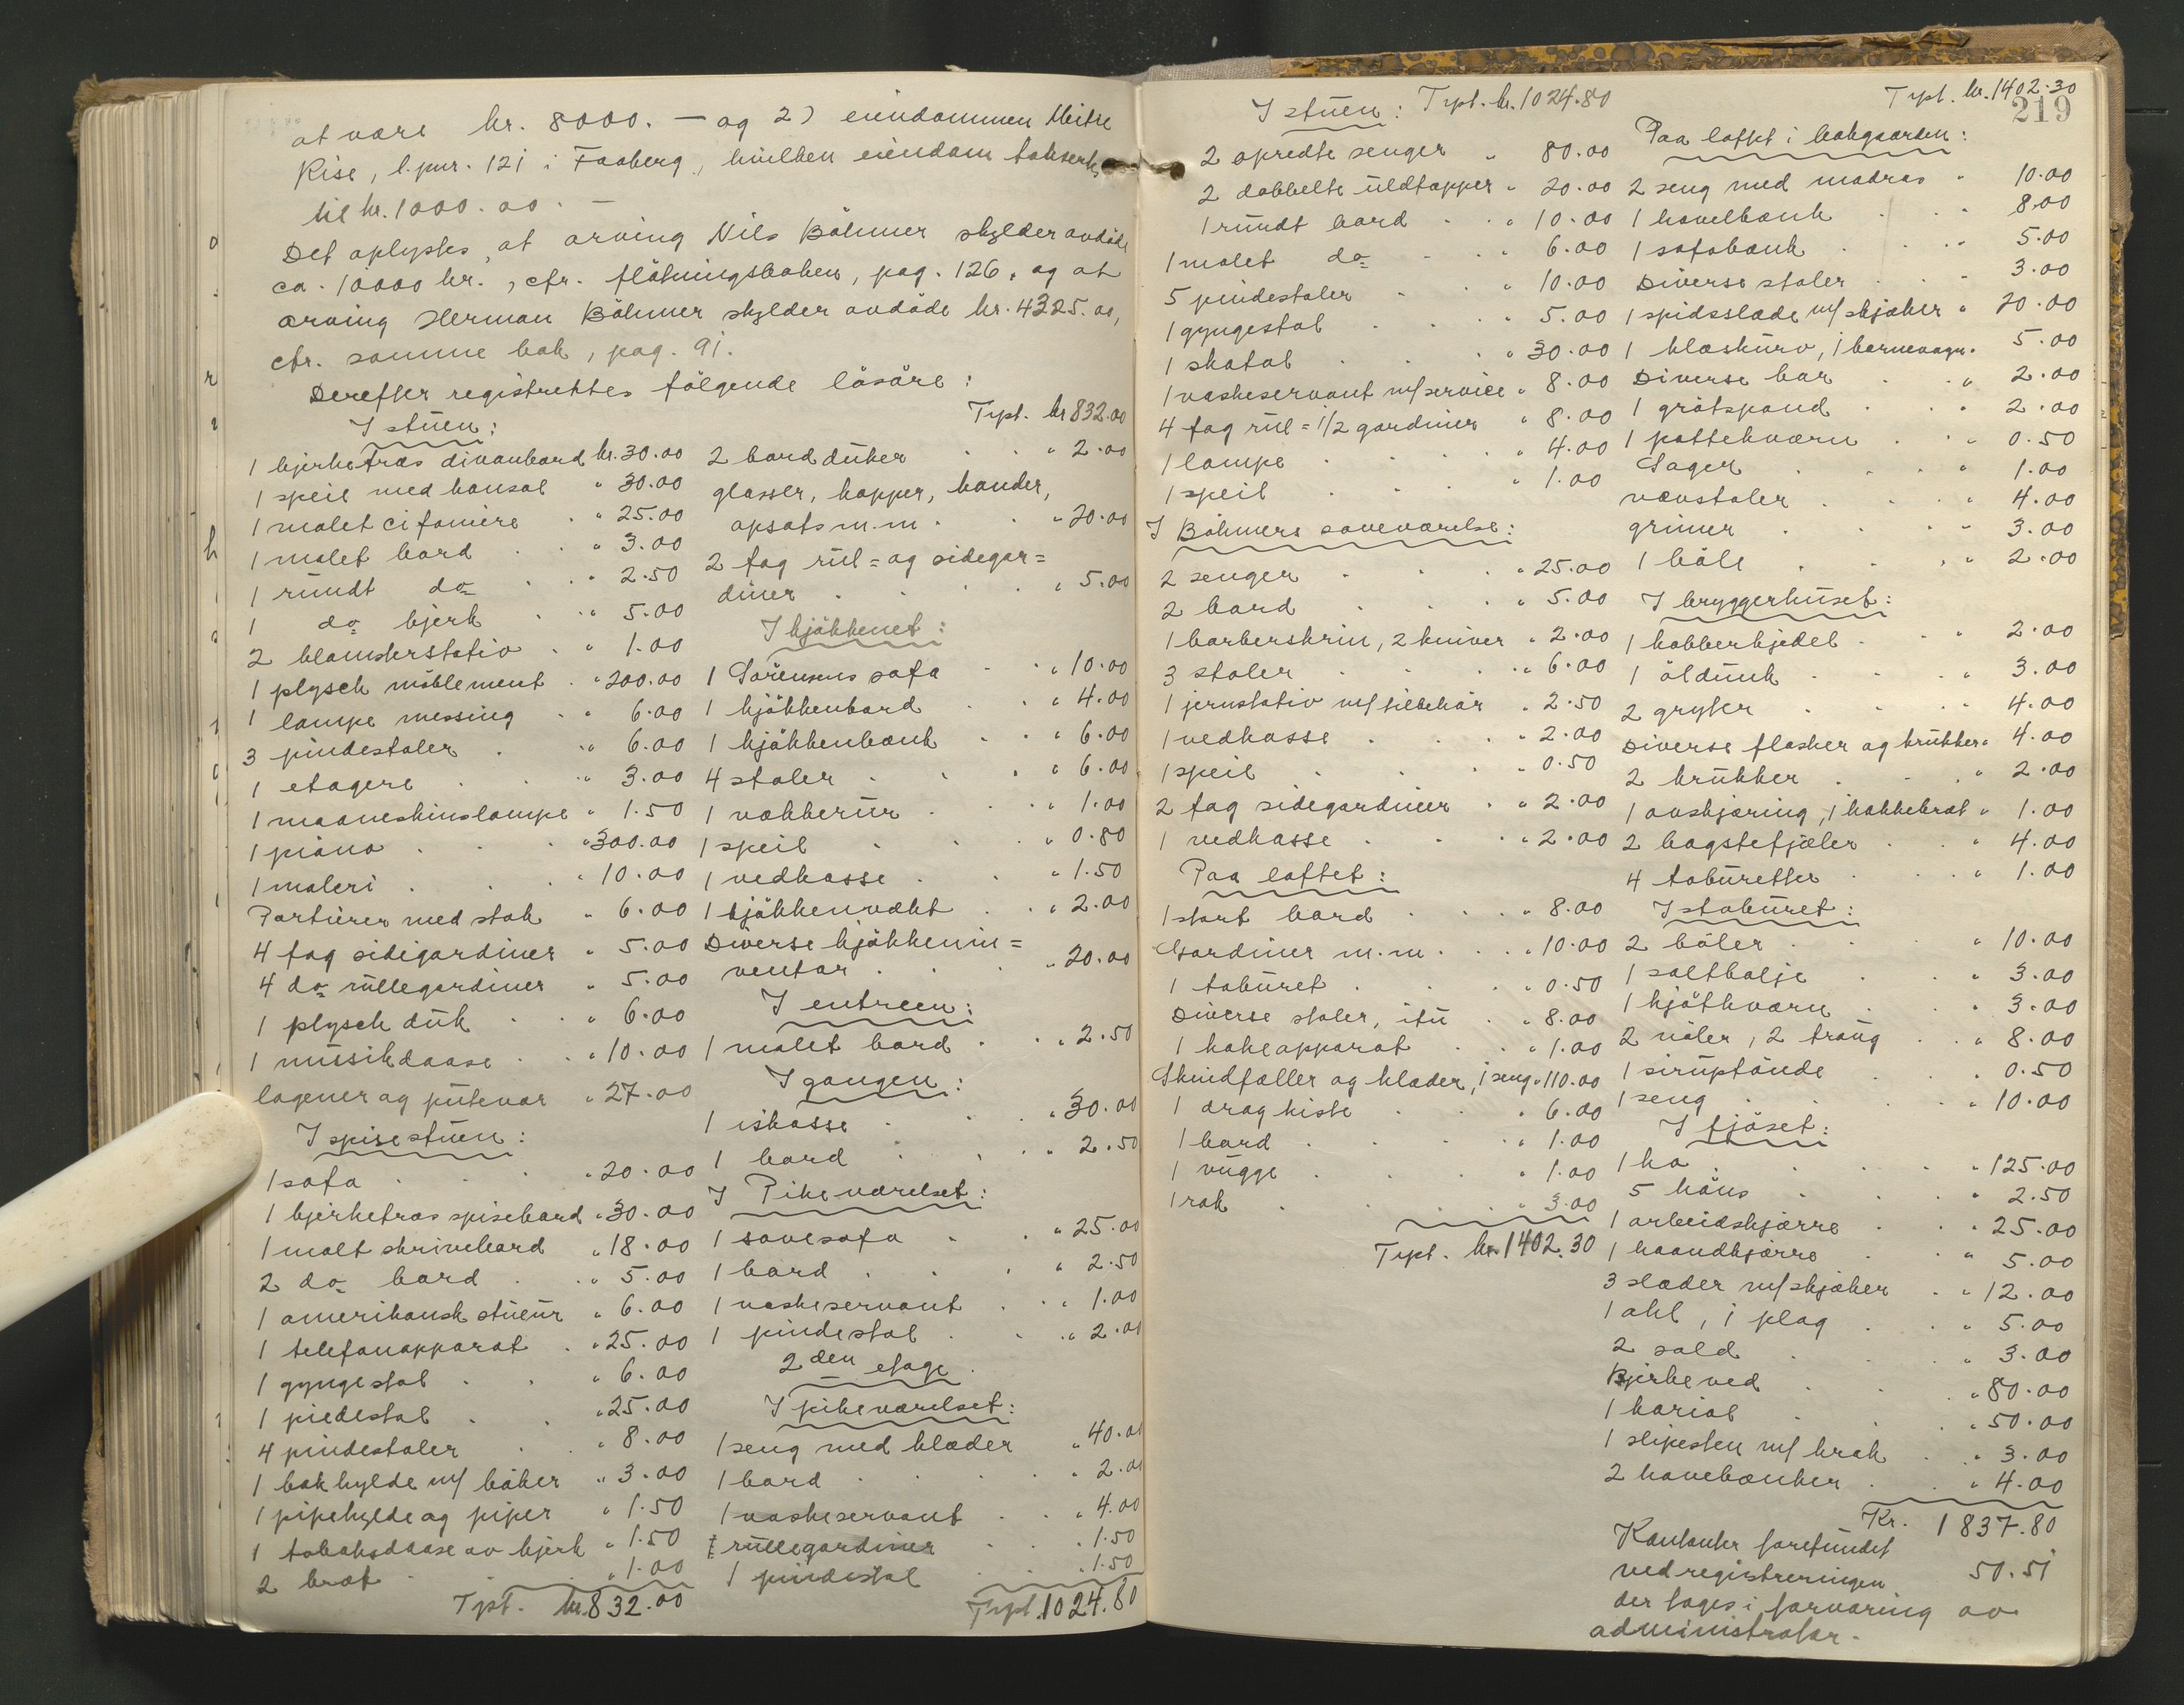 at være kr. 8000. — og 2) eiendommen Meitre
Rise, l.pnr. 121 i Faaberg, hvilken eiendom takserts
til kr. 1000.00. —
Det oplystes, at arving Nils Böhmer skylder avdöde
ca. 10000 kr., cfr. flötningsboken, pag. 126, og at
arving Herman Böhmer skylder avdöde kr. 4325.00,
cfr. samme bok, pag. 91.
Derefter registrertes fölgende lösöre:
I stuen:
1 bjerketræs divanbord kr. 30.00
1 speil med konsol " 30.00
1 malet cifoniere " 25.00
1 malet bord " 3.00
1 rundt do " 2.50
1 do bjerk " 5.00
2 blomsterstativ " 1.00
1 plysch möblement " 200.00
1 lampe messing " 6.00
3 pindestoler " 6.00
1 etagere " 3.00
1 maaneskinslampe " 1.50
1 piano " 300.00
1 maleri " 10.00
Portierer med stok " 6.00
4 fag sidigardiner " 5.00
4 do rullegardiner " 5.00
1 plysch duk " 6.00
1 musikdaase " 10.00
lagener og putevar " 27.00
I spisestuen:
1 sofa " 20.00
1 bjerketræs spisebord " 30.00
1 malt skrivebord " 18.00
2 do bord " 5.00
1 amerikansk stueur " 6.00
1 telefonapparat " 25.00
1 gyngestol " 6.00
1 piedestal " 25.00
4 pindestoler " 8.00
1 bokhylde m/ böker " 3.00
1 pipehylde og piper " 1.50
1 tobaksdaase av bjerk " 1.50
2 bræt " 1.00
Trpt. kr. 832.00
Trpt. kr 832.00
2 bordduker " 2.00
glasser, kopper, kander,
opsats m.m. " 20.00
2 fag rul= og sidegar=
diner " 5.00
I kjökkenet:
1 Sörensens sofa " 10.00
1 kjökkenbord " 4.00
1 kjökkenbænk " 6.00
4 stoler " 6.00
1 vækkerur " 1.00
1 speil " 0.80
1 vedkasse " 1.50
1 kjökkenvekt " 2.00
Diverse kjökkenin=
ventar " 20.00
I entreen:
1 malet bord " 2.50
I gangen:
1 iskasse " 30.00
1 bord " 2.50
I Pikeværelset:
1 sovesofa " 25.00
1 bord " 2.50
1 vaskeservant " 1.00
1 pindestol " 2.00
2den etage.
I pikeværelset:
1 seng med klæder " 40.00
1 bord " 2.00
1 vaskeservant " 4.00
rullegardiner " 1.50
1 pindestol " 1.50
Trpt. 1024.80
219
I stuen: Trpt. kr. 1024.80
2 opredte senger " 80.00
2 dobbelte uldtæpper " 20.00
1 rundt bord " 10.00
1 malet do " 6.00
5 pindestoler " 10.00
1 gyngestol " 5.00
1 skatol " 30.00
1 vaskeservant m/service " 8.00
4 fag rul= 1/2 gardiner " 8.00
1 lampe " 4.00
1 speil " 1.00
I Böhmers soveværelse:
2 senger " 25.00
2 bord " 5.00
1 barberskrin, 2 kniver " 2.00
3 stoler " 6.00
1 jernstativ m/tilbehör " 2.50
1 vedkasse " 2.00
1 speil " 0.50
2 fag sidegardiner " 2.00
1 vedkasse " 2.00
Paa loftet:
1 stort bord " 8.00
Gardiner m.m. " 10.00
1 taburet " 0.50
Diverse stoler, itu " 8.00
1 kokeapparat " 1.00
Skindfæller og klæder, 1 seng " 110.00
1 dragkiste " 6.00
1 bord " 1.00
1 vugge " 1.00
1 rok " 3.00
Trpt. kr. 1402.30
Trpt. kr. 1402.30
Paa loftet i bakgaarden:
2 seng med madras " 10.00
1 høvelbænk " 8.00
1 sofabænk " 5.00
Diverse stoler " 3.00
1 spidsslæde m/skjæker " 20.00
1 klæskurv, 1 barnevogn " 5.00
Diverse kar " 2.00
1 grötspand " 2.00
1 pottekværn " 0.50
Sager " 1.00
vævstoler " 4.00
grimer " 3.00
1 bölle " 2.00
I bryggerhuset:
1 kobberkjedel " 2.00
1 öldunk " 3.00
2 gryter " 4.00
Diverse flasker og krukker " 4.00
2 krukker " 2.00
1 avskjæring, 1 hakkebræt " 1.00
2 bagstefjæler " 4.00
4 taburetter " 1.00
I stabüret:
2 böler " 10.00
1 saltbalje " 3.00
1 kjötkværn " 3.00
2 nåler, 2 traug " 8.00
1 siruptönde " 0.50
1 seng " 10.00
I fjöset:
1 ko " 125.00
5 höns " 2.50
1 arbeidskjærre " 25.00
1 haandkjærre " 5.00
3 slæder m/skjæker " 12.00
1 ahl, 1 plog " 5.00
2 sold " 3.00
Bjerkeved " 80.00
1 kariol " 50.00
1 slipesten m/ krak " 3.00
2 havebænker " 4.00
Kr. 1837.80
Kontanter forefundet
ved registreringen 50.51
der tages i forvaring av
administrator.